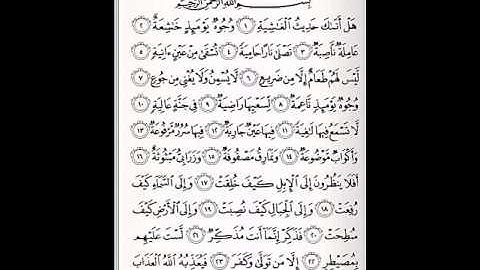 بِسْمِ اللَّهِ الرَّحْمَٰنِ الرَّحِيمِ
هَلْ أَتَىٰكَ حَدِيثُ الْغَاشِيَةِ ١ وُجُوهٌ يَوْمَئِذٍ خَاشِعَةٌ ٢
عَامِلَةٌ نَّاصِبَةٌ ٣ تَصْلَىٰ نَارًا حَامِيَةً ٤ تُسْقَىٰ مِنْ عَيْنٍ ءَانِيَةٍ ٥
لَّيْسَ لَهُمْ طَعَامٌ إِلَّا مِن ضَرِيعٍ ٦ لَّا يُسْمِنُ وَلَا يُغْنِي مِن جُوعٍ ٧
وُجُوهٌ يَوْمَئِذٍ نَّاعِمَةٌ ٨ لِّسَعْيِهَا رَاضِيَةٌ ٩ فِي جَنَّةٍ عَالِيَةٍ ١٠
لَّا تَسْمَعُ فِيهَا لَاغِيَةً ١١ فِيهَا عَيْنٌ جَارِيَةٌ ١٢ فِيهَا سُرُرٌ مَّرْفُوعَةٌ ١٣
وَأَكْوَابٌ مَّوْضُوعَةٌ ١٤ وَنَمَارِقُ مَصْفُوفَةٌ ١٥ وَزَرَابِيُّ مَبْثُوثَةٌ ١٦
أَفَلَا يَنظُرُونَ إِلَى الْإِبِلِ كَيْفَ خُلِقَتْ ١٧ وَإِلَى السَّمَاءِ كَيْفَ
رُفِعَتْ ١٨ وَإِلَى الْجِبَالِ كَيْفَ نُصِبَتْ ١٩ وَإِلَى الْأَرْضِ كَيْفَ
سُطِحَتْ ٢٠ فَذَكِّرْ إِنَّمَا أَنتَ مُذَكِّرٌ ٢١ لَّسْتَ عَلَيْهِم
بِمُصَيْطِرٍ ٢٢ إِلَّا مَن تَوَلَّىٰ وَكَفَرَ ٢٣ فَيُعَذِّبُهُ اللَّهُ الْعَذَابَ